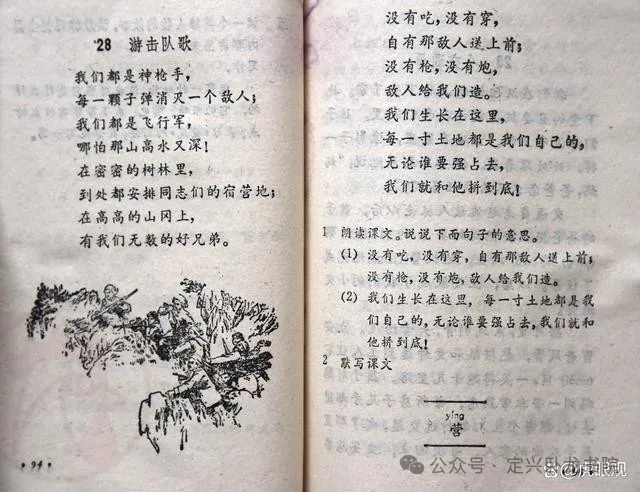 28 游击队歌
我们都是神枪手，
每一颗子弹消灭一个敌人；
我们都是飞行军，
哪怕那山高水又深！
在密密的树林里，
到处都安排同志们的宿营地；
在高高的山冈上，
有我们无数的好兄弟。
·94·
没有吃，没有穿，
自有那敌人送上前；
没有枪，没有炮，
敌人给我们造。
我们生长在这里，
每一寸土地都是我们自己的，
无论谁要强占去，
我们就和他拼到底！
1 朗读课文。说说下面句子的意思。
(1) 没有吃，没有穿，自有那敌人送上前；
没有枪，没有炮，敌人给我们造。
(2) 我们生长在这里，每一寸土地都是我
们自己的，无论谁要强占去，我们就和
他拼到底！
2 默写课文
yíng
营
公众号·定兴卧龙书院